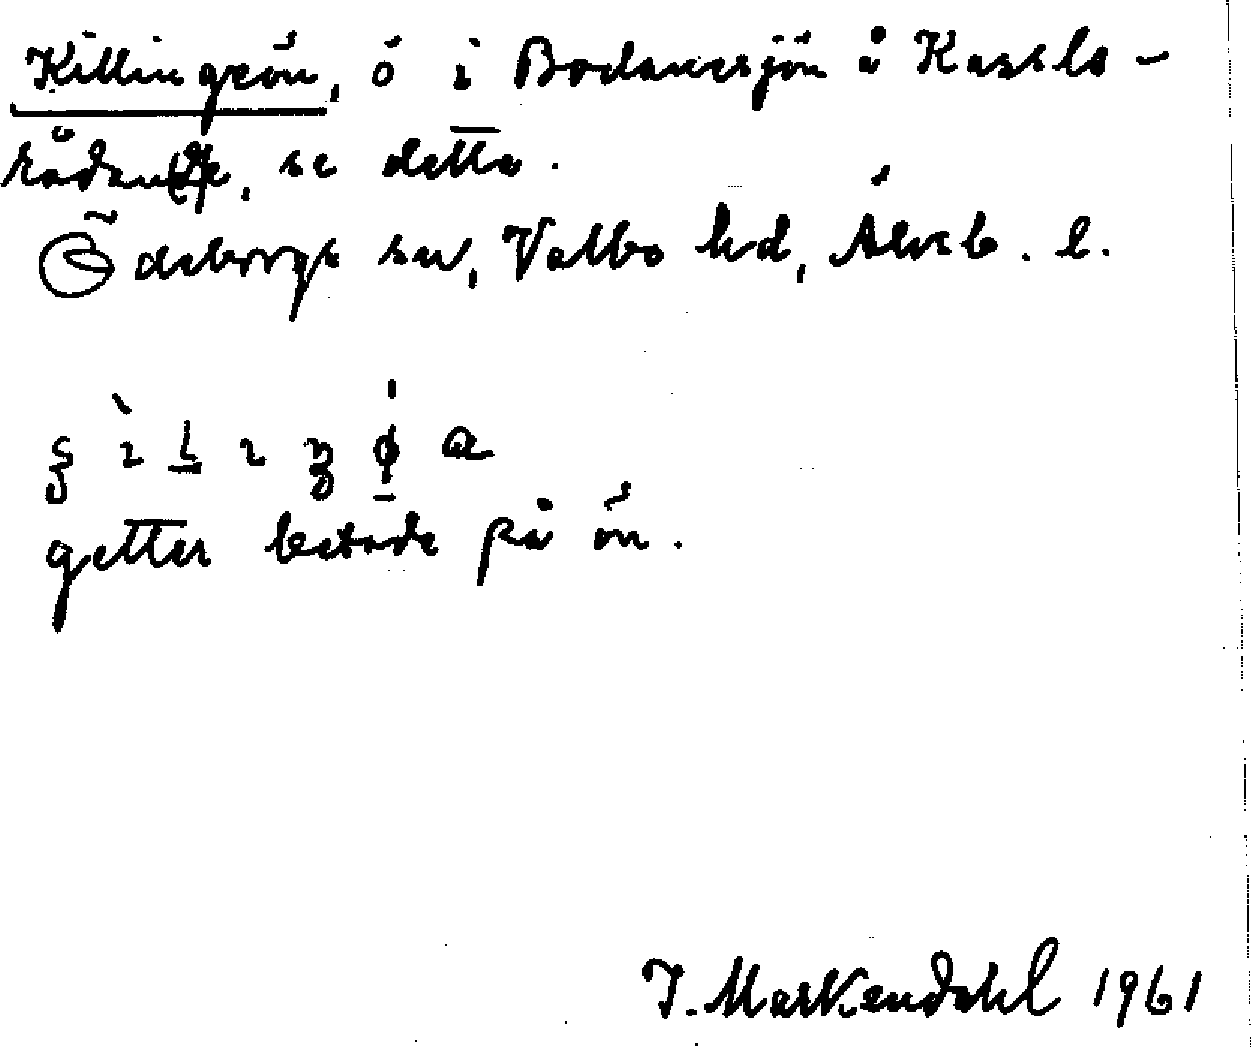 Killingeön, ö i Bodanesjön å Kassle-
rådande, se detta.
Ödeborgs sn, Valbo hd, Älvsb. l.
getter betade på ön.
J. Markendahl 1961